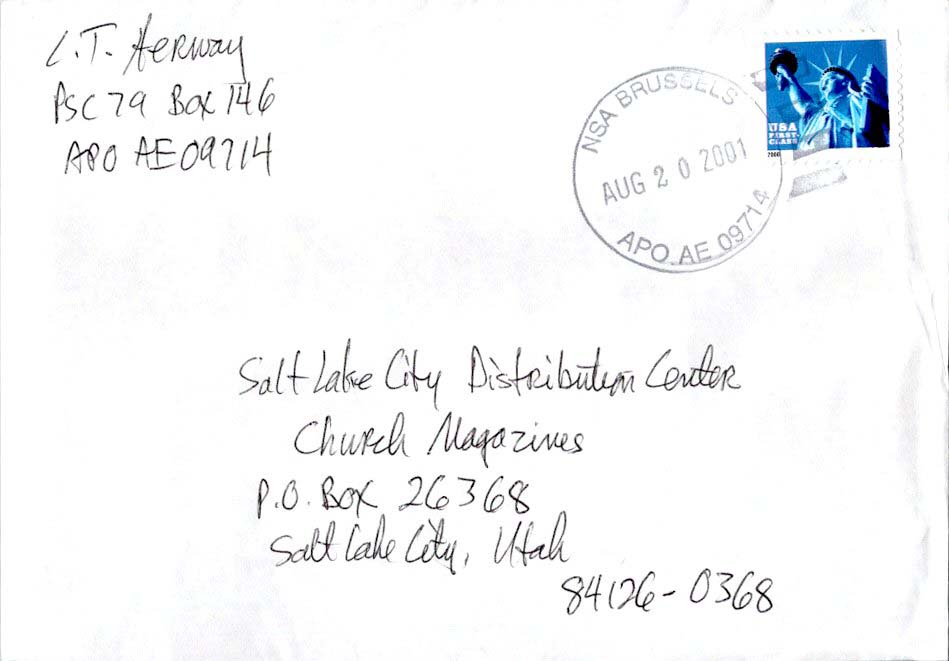 L.T. Aerway
PSC 79 Box 146
APO AE 09714
NSA BRUSSELS
AUG 20 2001
APO AE 09714
USA
FIRST-
CLASS
2000
Salt Lake City Distribution Center
Church Magazines
P.O. Box 26368
Salt Lake City, Utah
84126-0368